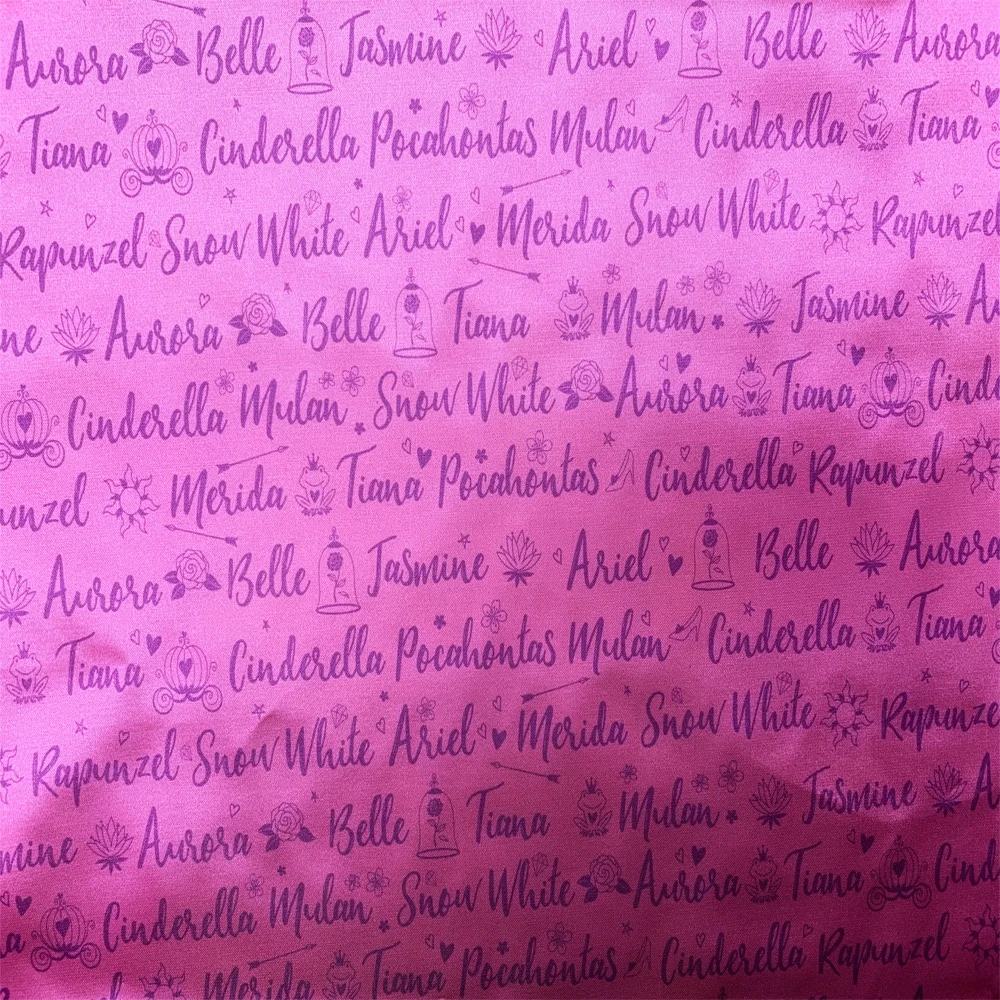 Aurora Belle Jasmine Ariel Belle Aurora
Tiana Cinderella Pocahontas Mulan Cinderella Tiana
Rapunzel Snow White Ariel Merida Snow White Rapunzel
ne Aurora Belle Tiana Mulan Jasmine A
Cinderella Mulan Snow White Aurora Tiana Cind
unzel Merida Tiana Pocahontas Cinderella Rapunzel
Aurora Belle Jasmine Ariel Belle Aurora
Tiana Cinderella Pocahontas Mulan Cinderella Tiana
Rapunzel Snow White Ariel Merida Snow White Rapunze
mine Aurora Belle Tiana Mulan Jasmine A
a Cinderella Mulan Snow White Aurora Tiana Cind
Merida Tiana Pocahontas Cinderella Rapunzel